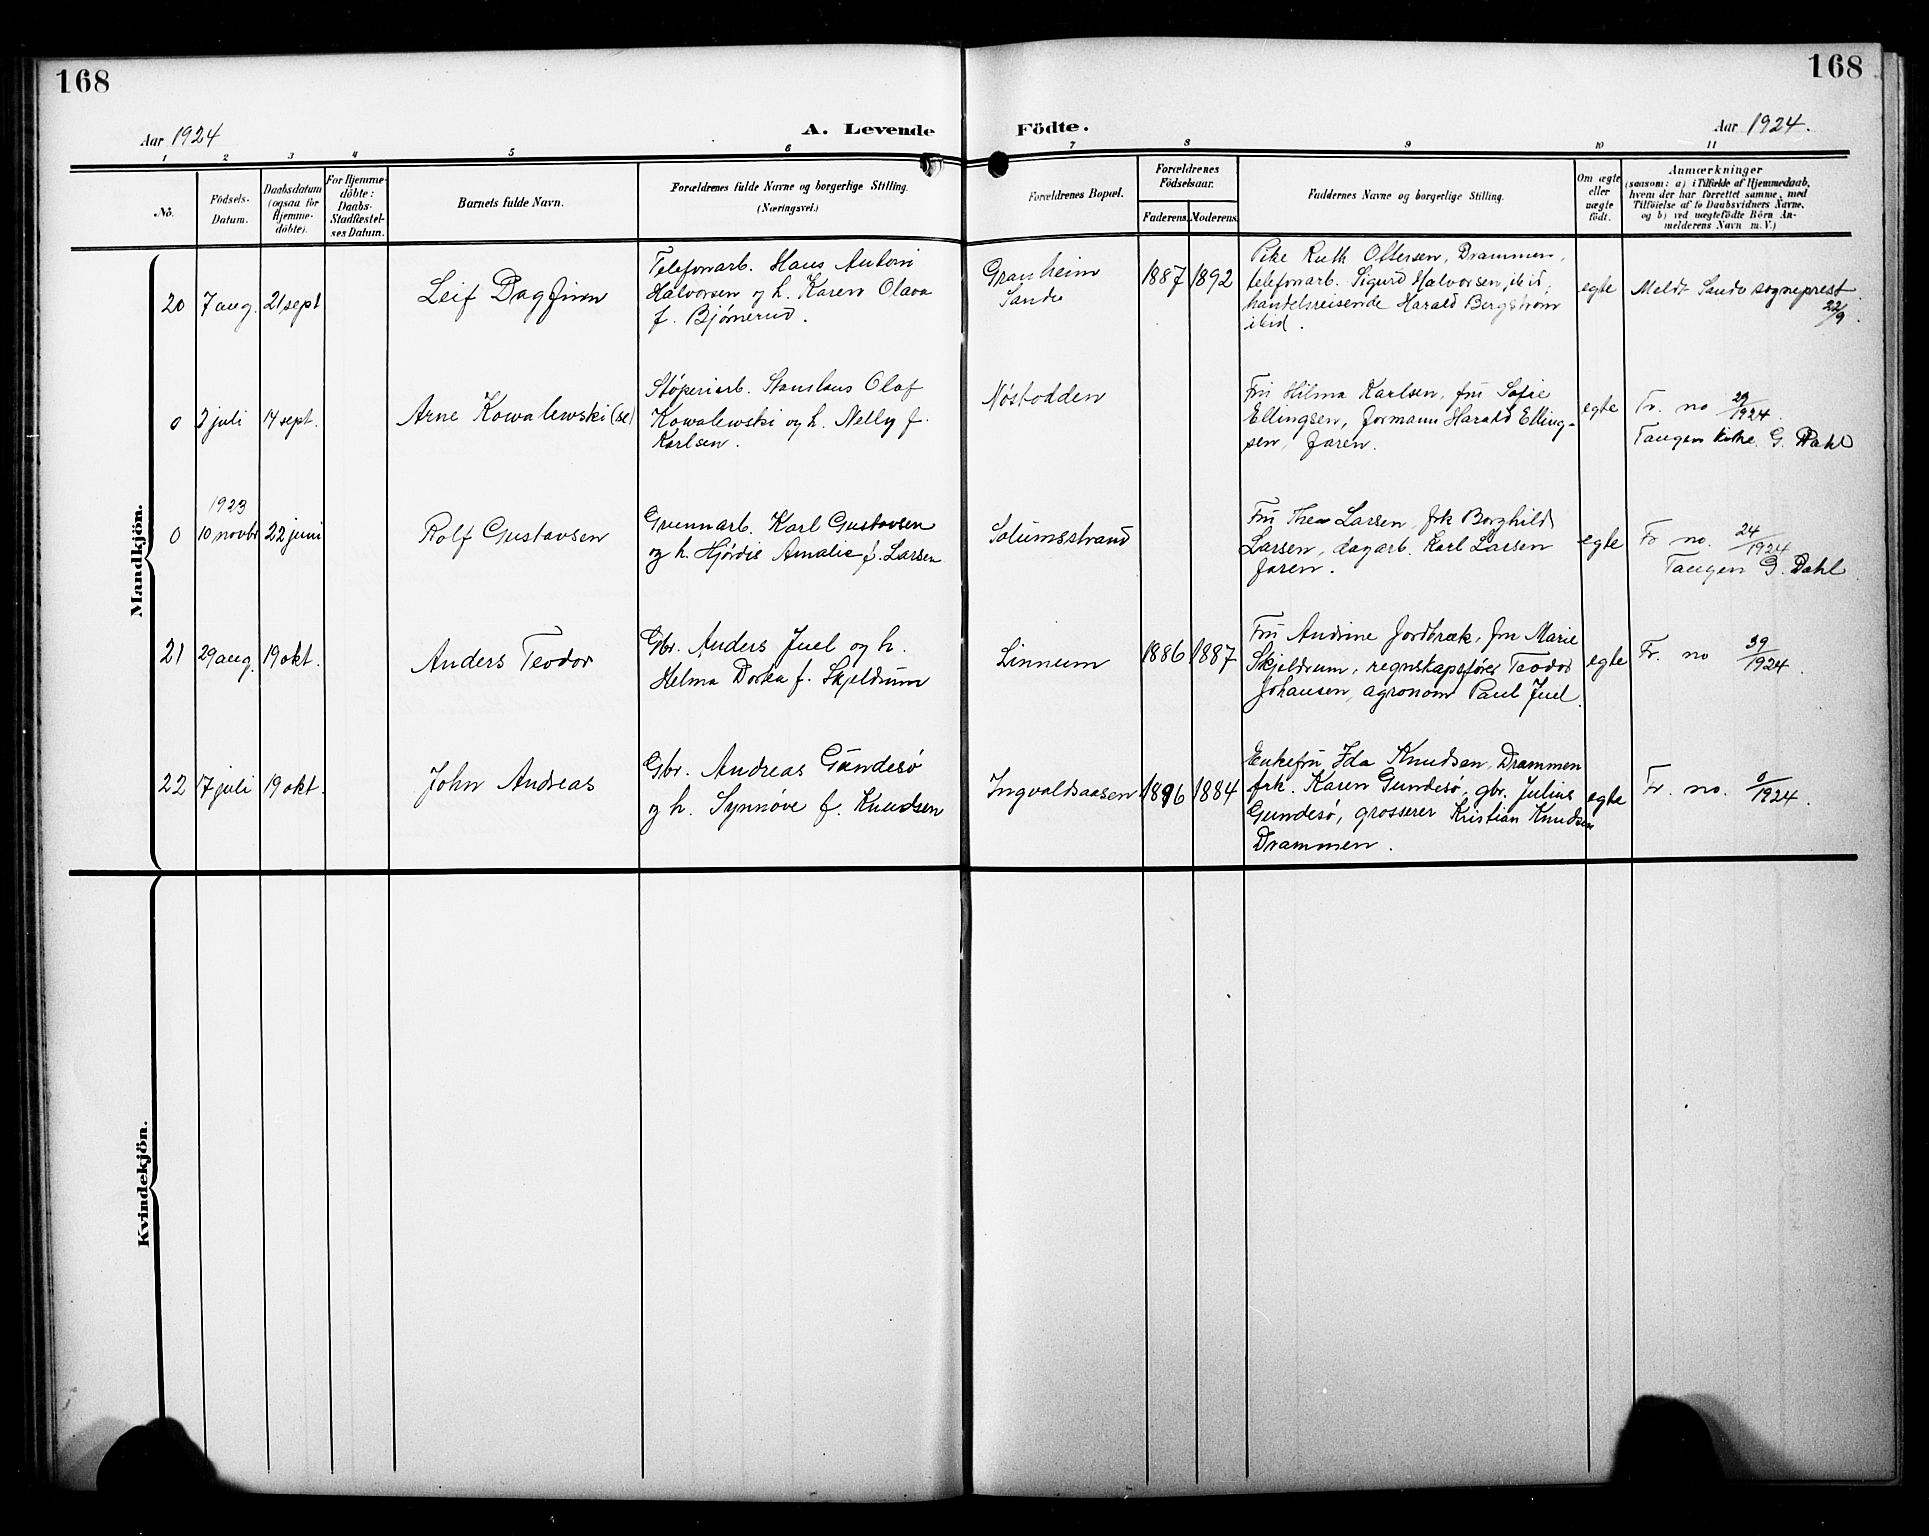 168
168
Aar 1924
A. Levende
Födte.
Aar 1924.
1 2 3 4 5 6 7 8 9 10 11
No.
Födsels-
Datum.
Daabsdatum
(ogsaa for
Hjemme-
döbte).
For Hjemme-
döbte:
Daabs-
Stadfæstel-
ses Datum.
Barnets fulde Navn.
Forældrenes fulde Navne og borgerlige Stilling.
(Næringsvei.)
Forældrenes Bopæl.
Forældrenes
Födselsaar.
Faderens. Moderens.
Faddernes Navne og borgerlige Stilling.
Om ægte
eller
uægte
födt.
Anmærkninger
(saasom: a) i Tilfælde af Hjemmedaab,
hvem der har forrettet samme, med
Tilföielse af to Daabsvidners Navne,
og b) ved uægtefödte Börn An-
melderens Navn m. V.)
Mandkjön.
20
7 aug.
21 sept
Leif Dagfinn
Telefonarb. Hans Antoni
Halvorsen og h. Karen Olava
f. Bjørnerud.
Granheim
Sande
1887
1892
Pike Ruth Oltersen, Drammen,
telefonarb. Sigurd Halvorsen, ibid,
handelsreisende Harald Bergstrøm
ibid.
egte
Meldt Sande sogneprest
22/9.
0
2 juli
14 sept.
Arne Kowalewski (se)
Støperiarb. Stanslaus Olaf
Kowalewski og h. Nelly f.
Karlsen.
Nøstodden
Fru Hilma Karlsen, fru Sofie
Ellingsen, formann Harald Elling-
sen, faren.
egte
Fr. no 29/1924.
Tangen kirke G. Dahl
0
1923
10 novbr
22 juni
Rolf Gustavsen
Grunnarb. Karl Gustavsen
og h. Hjørdis Amalie f. Larsen
Solumsstrand
Fru Thea Larsen, frk Borghild
Larsen, dagarb. Karl Larsen
faren.
egte
Fr no. 24/1924
Tangen G. Dahl
21
29 aug.
19 okt.
Anders Teodor
Gbr. Anders Juel og h.
Helma Dorthea f. Skjeldrum
Linnum
1886
1887
Fru Andrine Jordbræk, fru Marie
Skjeldrum, regnskapsfører Teodor
Johansen, agronom Paul Juel.
egte
Fr. no 39/1924.
22
17 juli
19 okt.
John Andreas
Gbr. Andreas Gundesø
og h. Synnøve f. Knudsen
Ingvaldsaasen
1896
1884
Enkefru Ida Knudsen, Drammen
frk. Karen Gundesø, gbr. Julius
Gundesø, grosserer Kristian Knudsen
Drammen.
egte
Fr. no. 0/1924.
Kvindekjön.